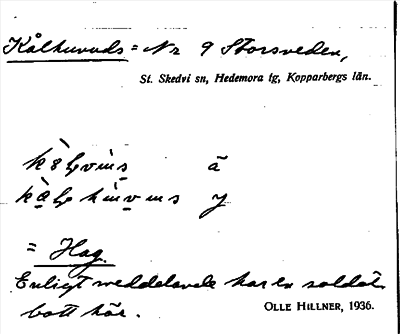 Kålhuvuds = Nr 9 Storsveden,
St. Skedvi sn, Hedemora tg, Kopparbergs län.
ā
y
= Hag.
Enligt meddelande har en soldat
bott här.
OLLE HILLNER, 1936.